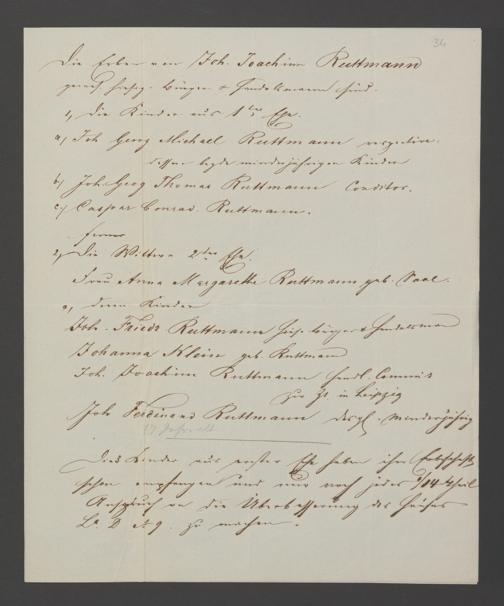 34
Die Erben von Joh. Joachim Ruttmann
gewes. hiesig. Bürger & Handelsmann sind.
1, Die Kinder aus 1ter Ehe.
a, Joh Georg Michael Ruttmann respective.
dessen beyde minderjährigen Kinder
b, Joh. Georg Thomas Ruttmann Conditor.
c, Caspar Conrad Ruttmann.
ferner
2, Die Wittwe 2ter Ehe.
Frau Anna Margaretha Ruttmann geb. Saal.
a, deren Kinder
Joh. Friedr Ruttmann hies. Bürger & Handelsmann
Johanna Klein geb Ruttmann
Joh. Joachim Ruttmann Handl. Commis
zur Zt in Leipzig
Joh Ferdinand Ruttmann desgl. Minderjährig
17 Jahr alt
Die Kinder aus erster Ehe haben ihre Erbschaft
schon empfangen und nur noch jedes 1/14 Theil
Anspruch an die Überbesserung des Hauses
La. D No 9. zu machen.